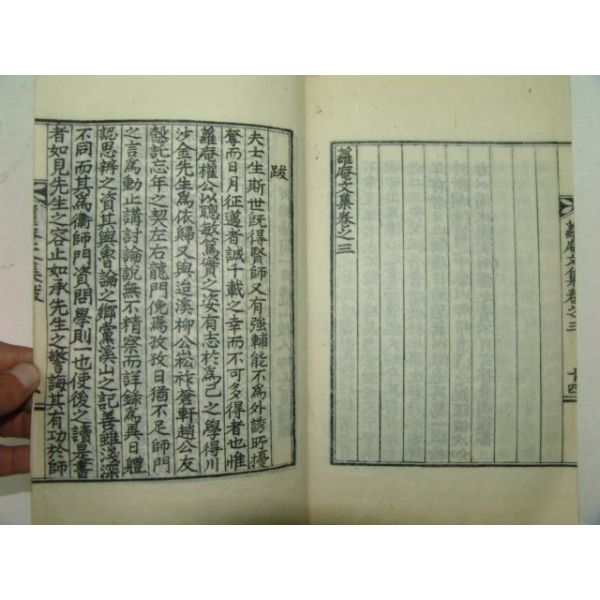 蘿庵文集卷之三
十四
蘿庵文集卷之三
跋
夫士生斯世旣得賢師又有強輔能不爲外誘所擾
奪而日月征邁者誠千載之幸而不可多得者也惟
蘿庵權公以聰敏篤實之姿有志於爲己之學得川
沙金先生爲依歸又與迨溪柳公崧祚蒼軒趙公友
慤託忘年之契左右龍門俛焉孜孜日猶不足師門
之言爲動止講討論說無不精察而詳錄爲異日體
認思辨之資其與魯論之鄕黨溪山之記善雖淺深
不同而其爲衛師門資問學則一也使後之讀是書
者如見先生之容止如承先生之警誨其有功於師